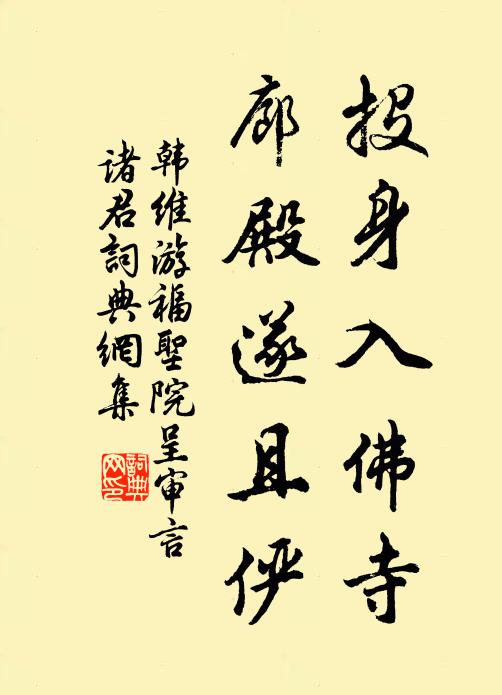 投身入佛寺
廊殿遂且俨
韩维游福聖院呈审言
诸君詞典網集
詞典
网印